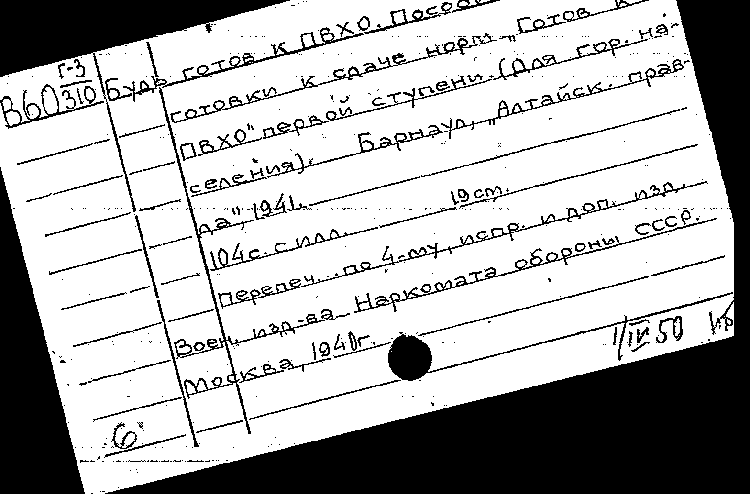 Г-3
В60 310
Будь готов к ПВХО. Пособ
готовки к сдаче норм „Готов к
ПВХО" первой ступени. (Для гор. на-
селения). Барнаул, „Алтайск. прав-
да", 1941.
104 с. с илл. 19 см.
Перепеч. по 4-му, испр. и доп. изд.
Воен. изд-ва Наркомата обороны СССР.
Москва, 1940г.
1/IV 50
6